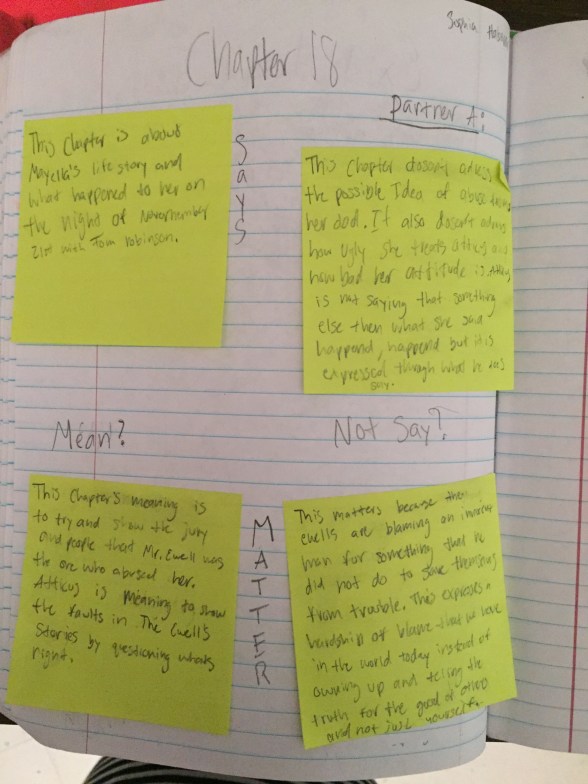 Sophia
Chapter 18
Partner A:
This Chapter is about
Mayella's life story and
what happened to her on
the night of Novernember
21st with Tom robinson.
Says
This Chapter dosen't
the possible Idea of abuse
her dad. It also dosen't
how ugly she treats atticus and
how bad her attitude is. Atticus
is not saying that something
else then what she said
happend, happend but it is
expressed through what he does
say.
Mean?
Not Say?
This Chapter's meaning is
to try and show the jury
and people that Mr. Ewell was
the one who abused her.
Atticus is meaning to show
the faults in The Ewell's
Stories by questioning whats
right.
MATTER
This matters because the
Ewells are blaming an innocent
man for something that he
did not do to save themselves
from trouble. This expresses a
hardship of blame that we have
in the world today instead of
owning up and telling the
truth for the good of others
and not just yourself.